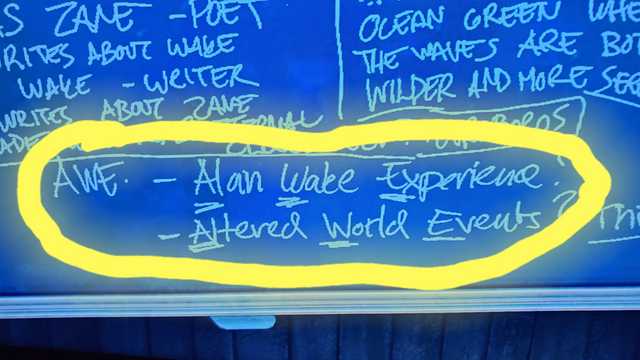 ZANE - POET
WRITES ABOUT WAKE
WAKE - WRITER
WRITES ABOUT ZANE
OCEAN GREEN WHE
THE WAVES ARE BOT
WILDER AND MORE SER
AWE. - Alan Wake Experience.
- Altered World Events?